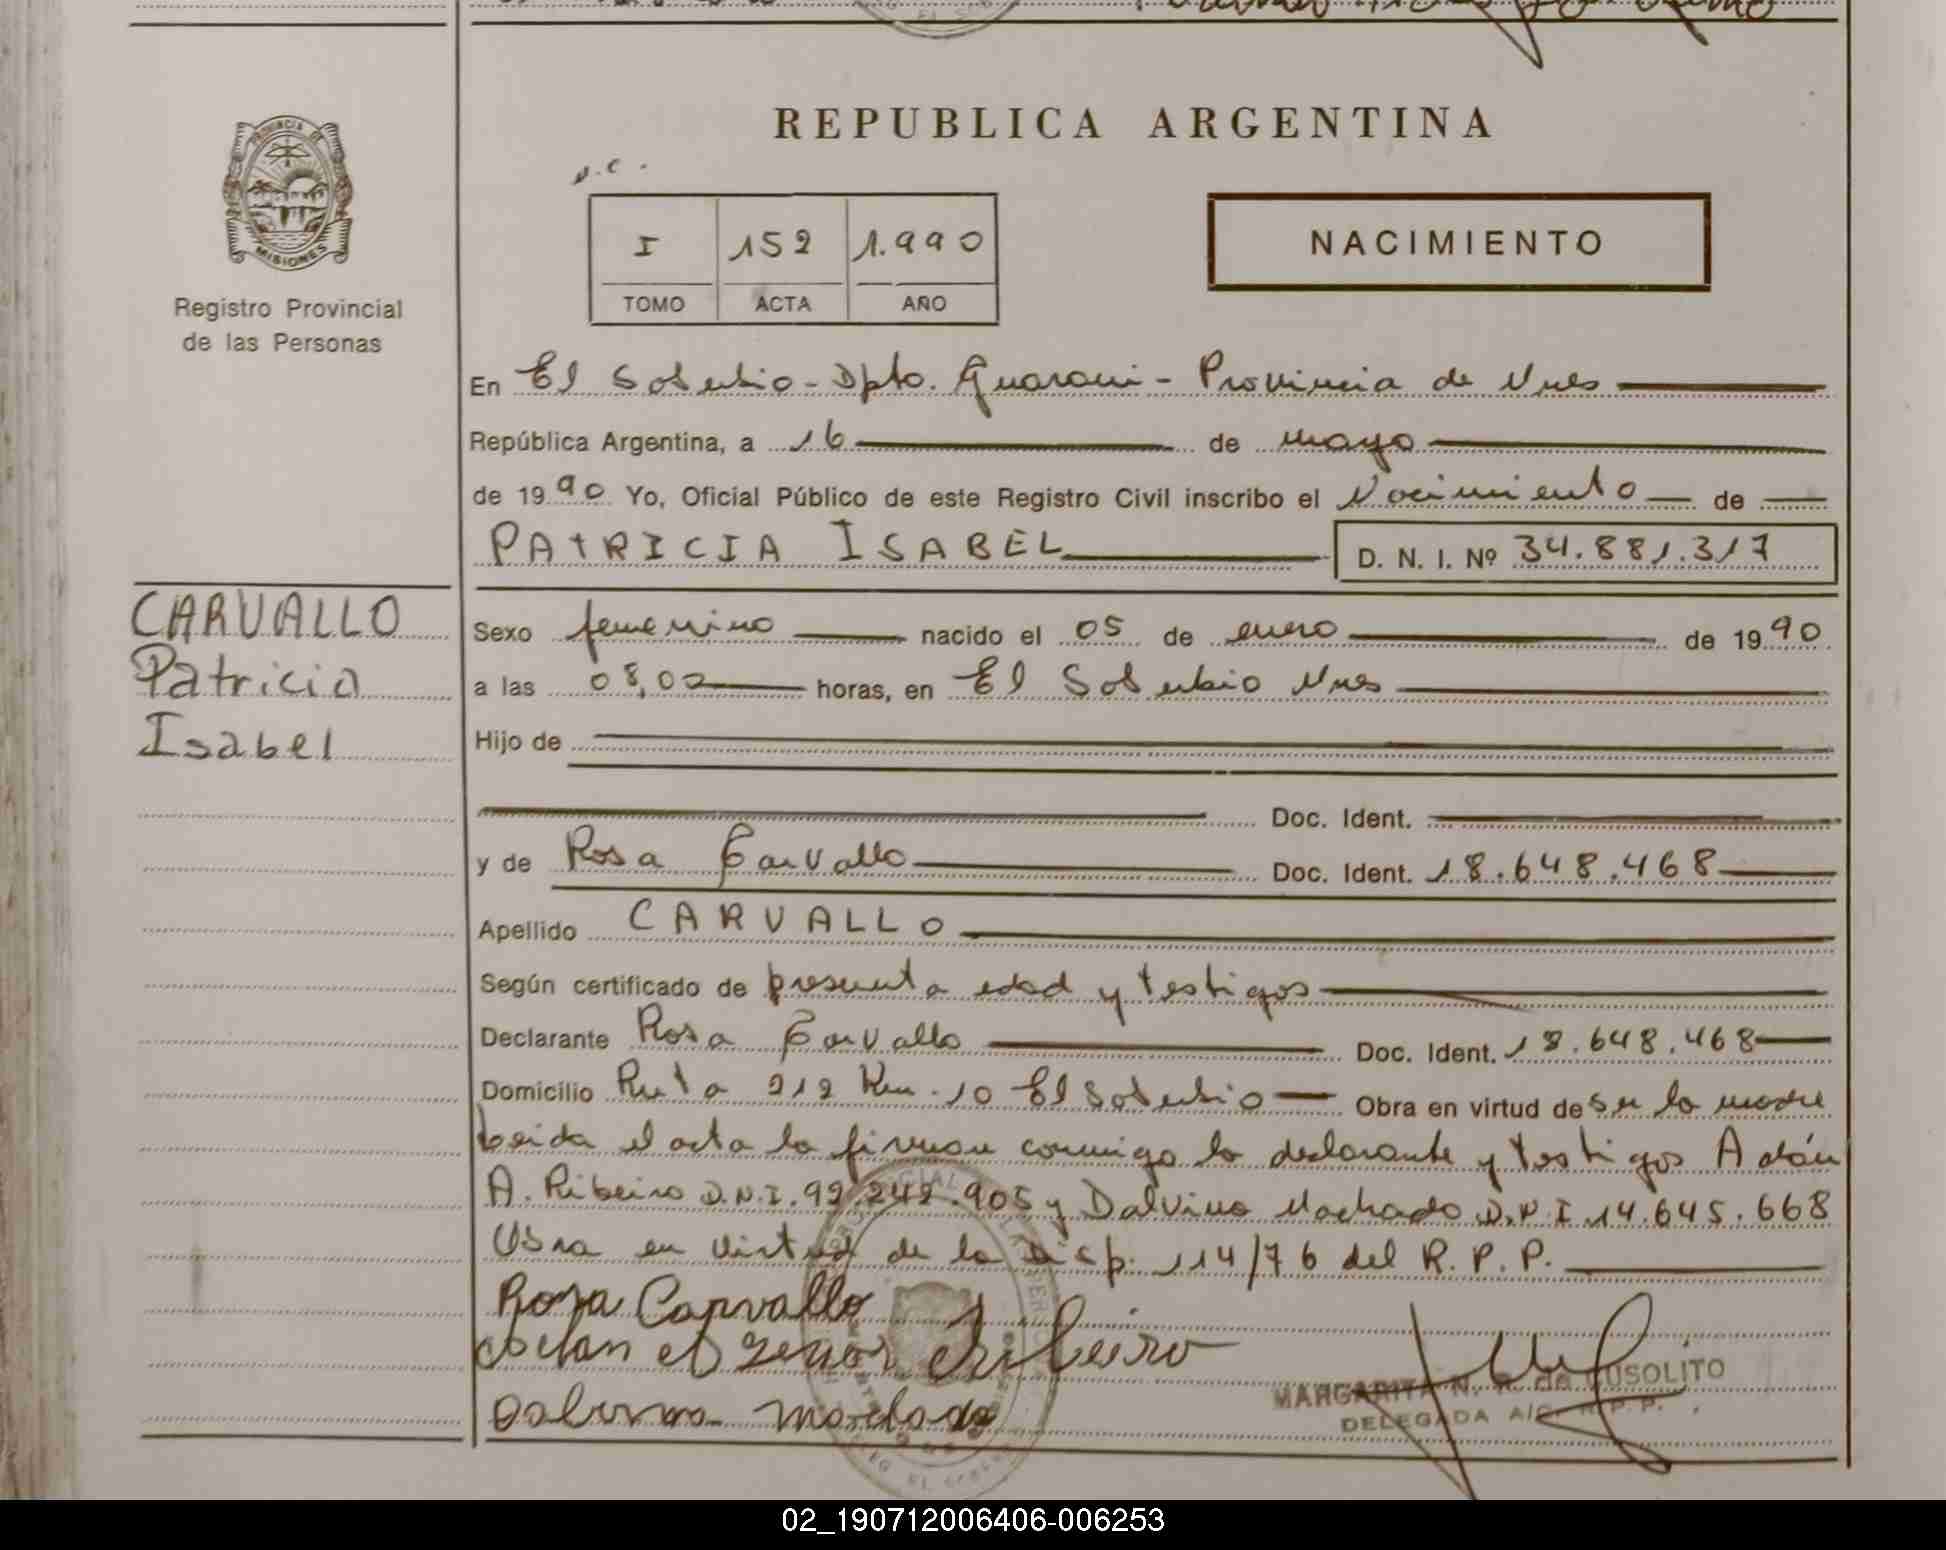 REPUBLICA ARGENTINA
PROVINCIA DE
MISIONES
Registro Provincial
de las Personas
I 152 1.990
TOMO ACTA AÑO
NACIMIENTO
En El Soberbio - Dpto. Guarani - Provincia de Mnes
República Argentina, a 16 de mayo
de 1990 Yo, Oficial Público de este Registro Civil inscribo el Nacimiento de
PATRICIA ISABEL D. N. I. Nº 34.881.317
CARVALLO
Patricia
Isabel
Sexo femenino nacido el 05 de enero de 1990
a las 08,02 horas, en El Soberbio Mnes
Hijo de
Doc. Ident.
y de Rosa Carvallo Doc. Ident. 18.648.468
Apellido CARVALLO
Según certificado de presunta edad y testigos
Declarante Rosa Carvallo Doc. Ident. 18.648.468
Domicilio Ruta 212 Km. 10 El Soberbio Obra en virtud de ser la madre
Leida el acta la firman conmigo la declarante y testigos Adán
A. Ribeiro D.N.I. 92.242.905 y Dalvino Machado D.N.I. 14.645.668
Obra en virtud de la Disp. 114/76 del R. P. P.
Rosa Carvallo
Ribeiro
MARGARITA N. R. de CUSOLITO
DELEGADA A/C. R.P.P.
02_190712006406-006253